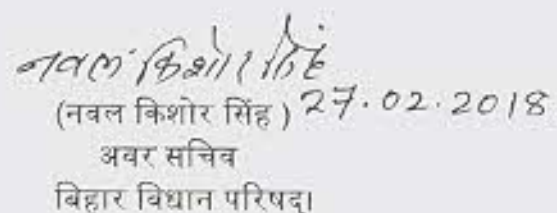 नवल किशोर सिंह
(नवल किशोर सिंह ) 27.02.2018
अवर सचिव
बिहार विधान परिषद्।